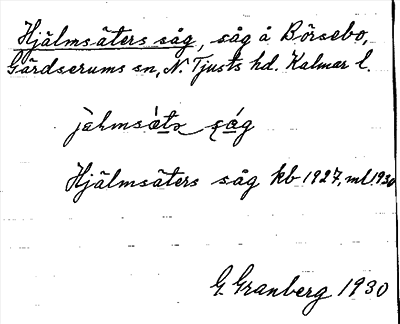 Hjälmsäters såg, såg å Börsebo,
Gärdserums sn, N. Tjusts hd. Kalmar l.
såg
Hjälmsäters såg kb 1927, ml. 1930
G. Granberg 1930